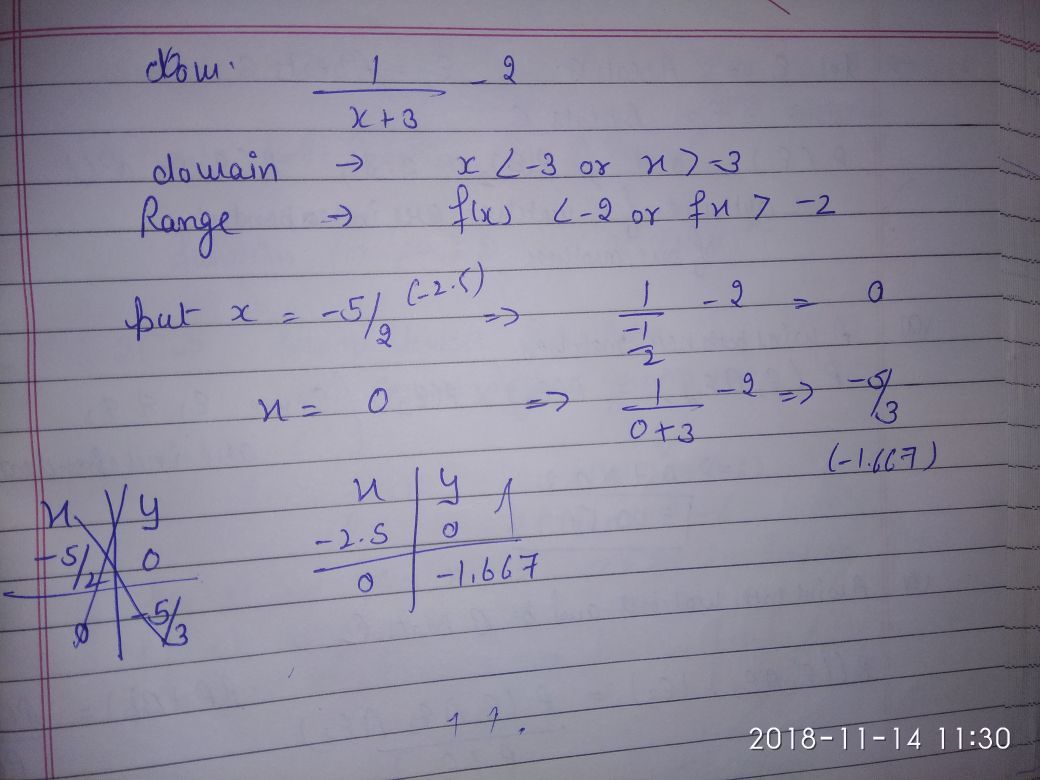 1/(x+3) - 2
domain → x < -3 or x > -3
Range → f(x) < -2 or fx > -2
put x = -5/2 (-2.5) ⇒ 1/(-1/2) - 2 = 0
x = 0 ⇒ 1/(0+3) - 2 ⇒ -5/3
(-1.667)
x | y
-5/2 | 0
0 | -5/3
x | y
-2.5 | 0
0 | -1.667
2018-11-14 11:30